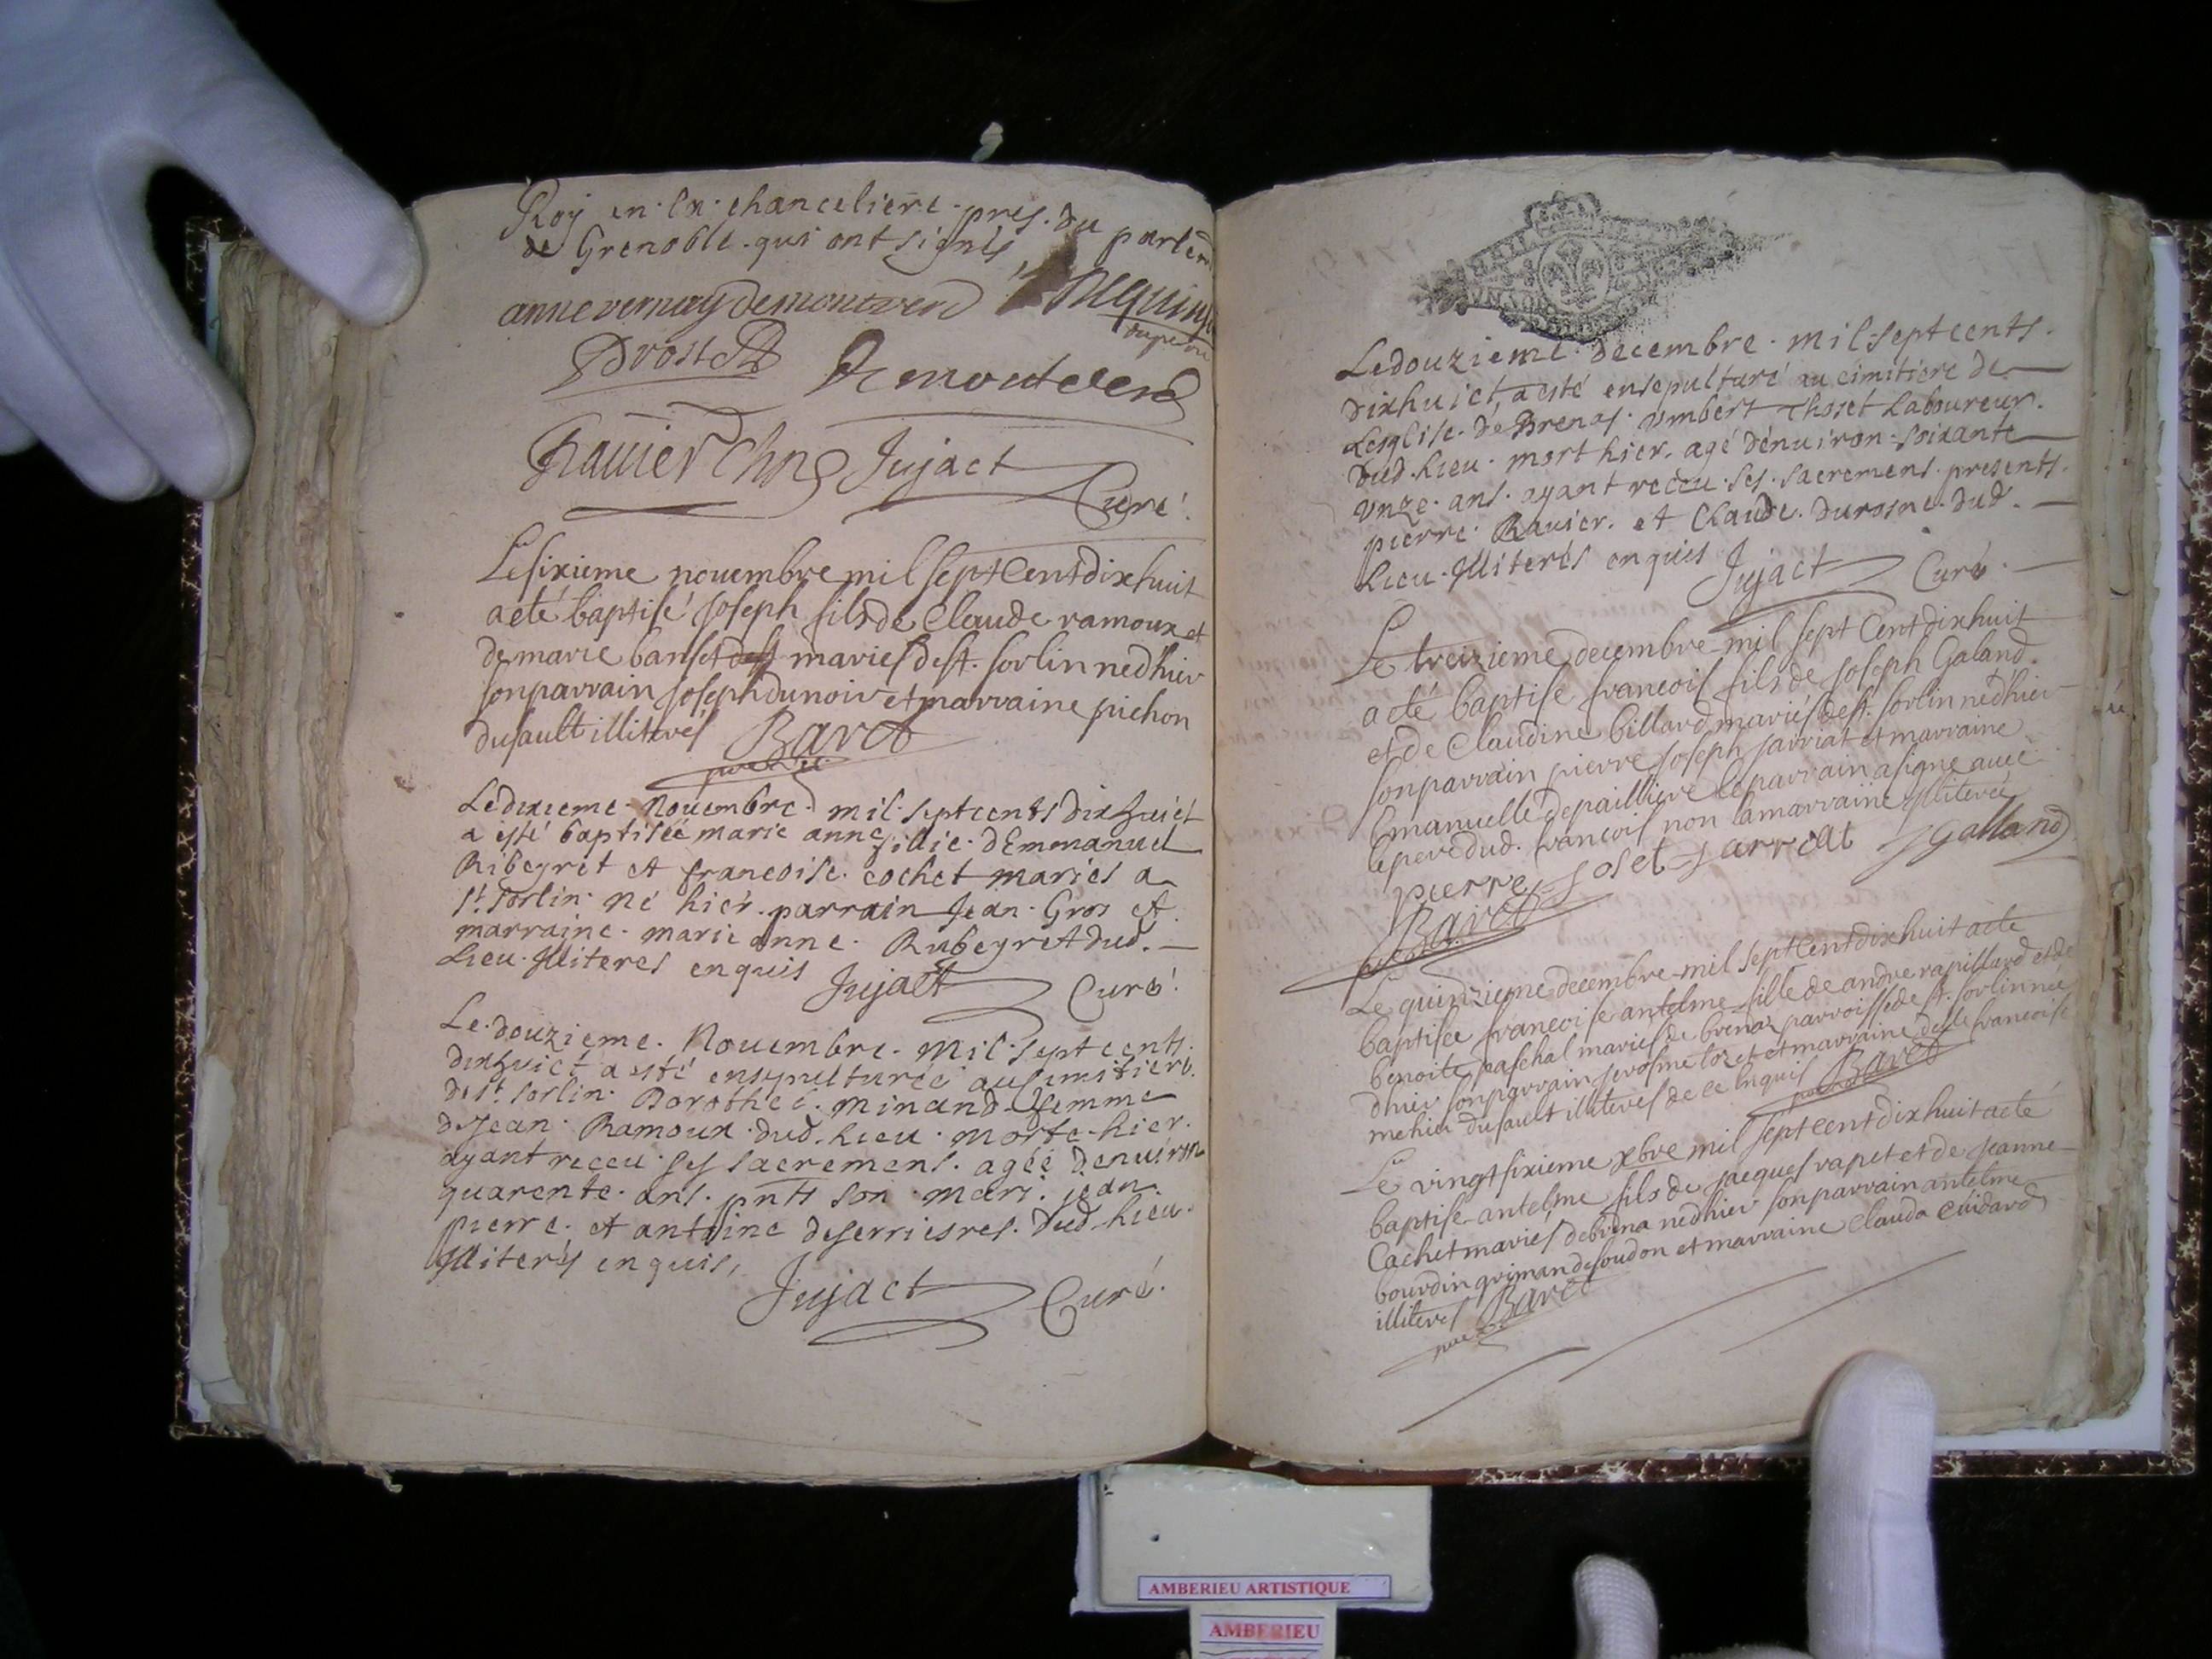 Roy en la chanceliere pres du parlem
de Grenoble qui ont signés
anne vernay demontverd
Drostet Demontverd
Ravier Chng Jujact
Curé
Le sixieme novembre mil sept Cent dix huit
a eté baptisé joseph fils de Claude ramoux et
de marie banset mariés de st. sorlin né d'hier
son parrain joseph dunoir et marraine pichon
dusault illiterés Baret
Le dixieme Novembre mil sept cents dix huict
a esté baptisée marie anne fillie d'Emmanuel
Ribeyret et francoise cochet mariés a
St. Sorlin né hier parrain Jean Gros et
marraine marie anne Rubeyret dud.
Lieu Jlliteres enquis Jujact Curé
Le douzieme Novembre Mil sept cents
dixhuict a esté ensepulturée au simitiere
de St. Sorlin Dorothée minand femme
de Jean Ramoux dud. Lieu morte hier
ayant receu ses sacremens agée denuiron
quarente ans pnts son mari jean
pierre et antoine deserriesres dud. Lieu
Jlliterés enquis,
Jujact Curé
Le douzieme decembre mil sept cents
dixhuict a esté ensepulturé au cimitiere de
Lesglise de Brenas Umbert Thoset Laboureur
dud. Lieu mort hier agé dénuiron soixante
unze ans ayant receu ses sacremens presents
pierre Ravier et Claude durosne dud.
Lieu Jlliterés enquis Jujact Curé
Le treizieme decembre mil sept Cent dixhuit
a eté baptisé francois fils de joseph Galand
et de Claudine billard mariés de st. sorlin né d'hier
son parrain pierre joseph jarriat et marraine
Emanuelle depailliere le parrain a signe avec
le pere dud. francois non la marraine illiterée
pierre joset jarreat J Galland
Baret
Le quinzieme decembre mil sept Cent dixhuit a eté
baptisée francoise antelme fille de andre rapillard et de
benoite paschal mariés de brenaz parroisse de st. sorlin née
d'hier son parrain jerosme lozet et marraine delle francoise
mehier dusault illiterés de ce Enquis Baret
Le vingt sixieme xbre mil sept Cent dix huit a eté
baptisé antelme fils de jacques rapet et de jeanne
Cachet mariés de brena né d'hier son parrain antelme
bourdin grimand de soudon et marraine Clauda Cuidard
illiterés Baret
AMBERIEU ARTISTIQUE
AMBERIEU